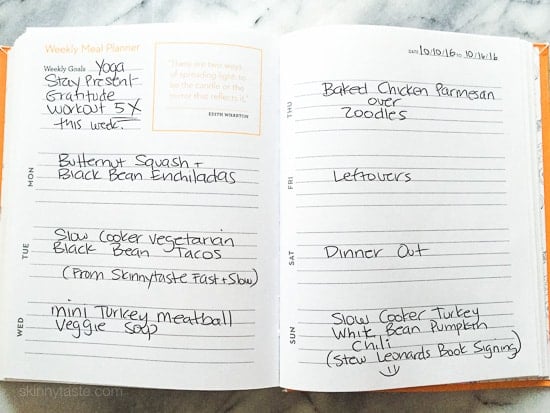 Weekly Meal Planner
Weekly Goals Yoga
Stay Present
Gratitude
Workout 5X
this week.
"There are two ways
of spreading light: to
be the candle or the
mirror that reflects it."
EDITH WHARTON
MON
Butternut Squash +
Black Bean Enchiladas
TUE
Slow Cooker Vegetarian
Black Bean Tacos
(From Skinnytaste Fast + Slow)
WED
mini Turkey meatball
Veggie Soup
skinnytaste.com
DATE 10/10/16 TO 10/16/16
THU
Baked Chicken Parmesan
over
Zoodles
FRI
Leftovers
SAT
Dinner Out
SUN
Slow Cooker Turkey
White Bean Pumpkin
Chili
(Stew Leonards Book Signing)